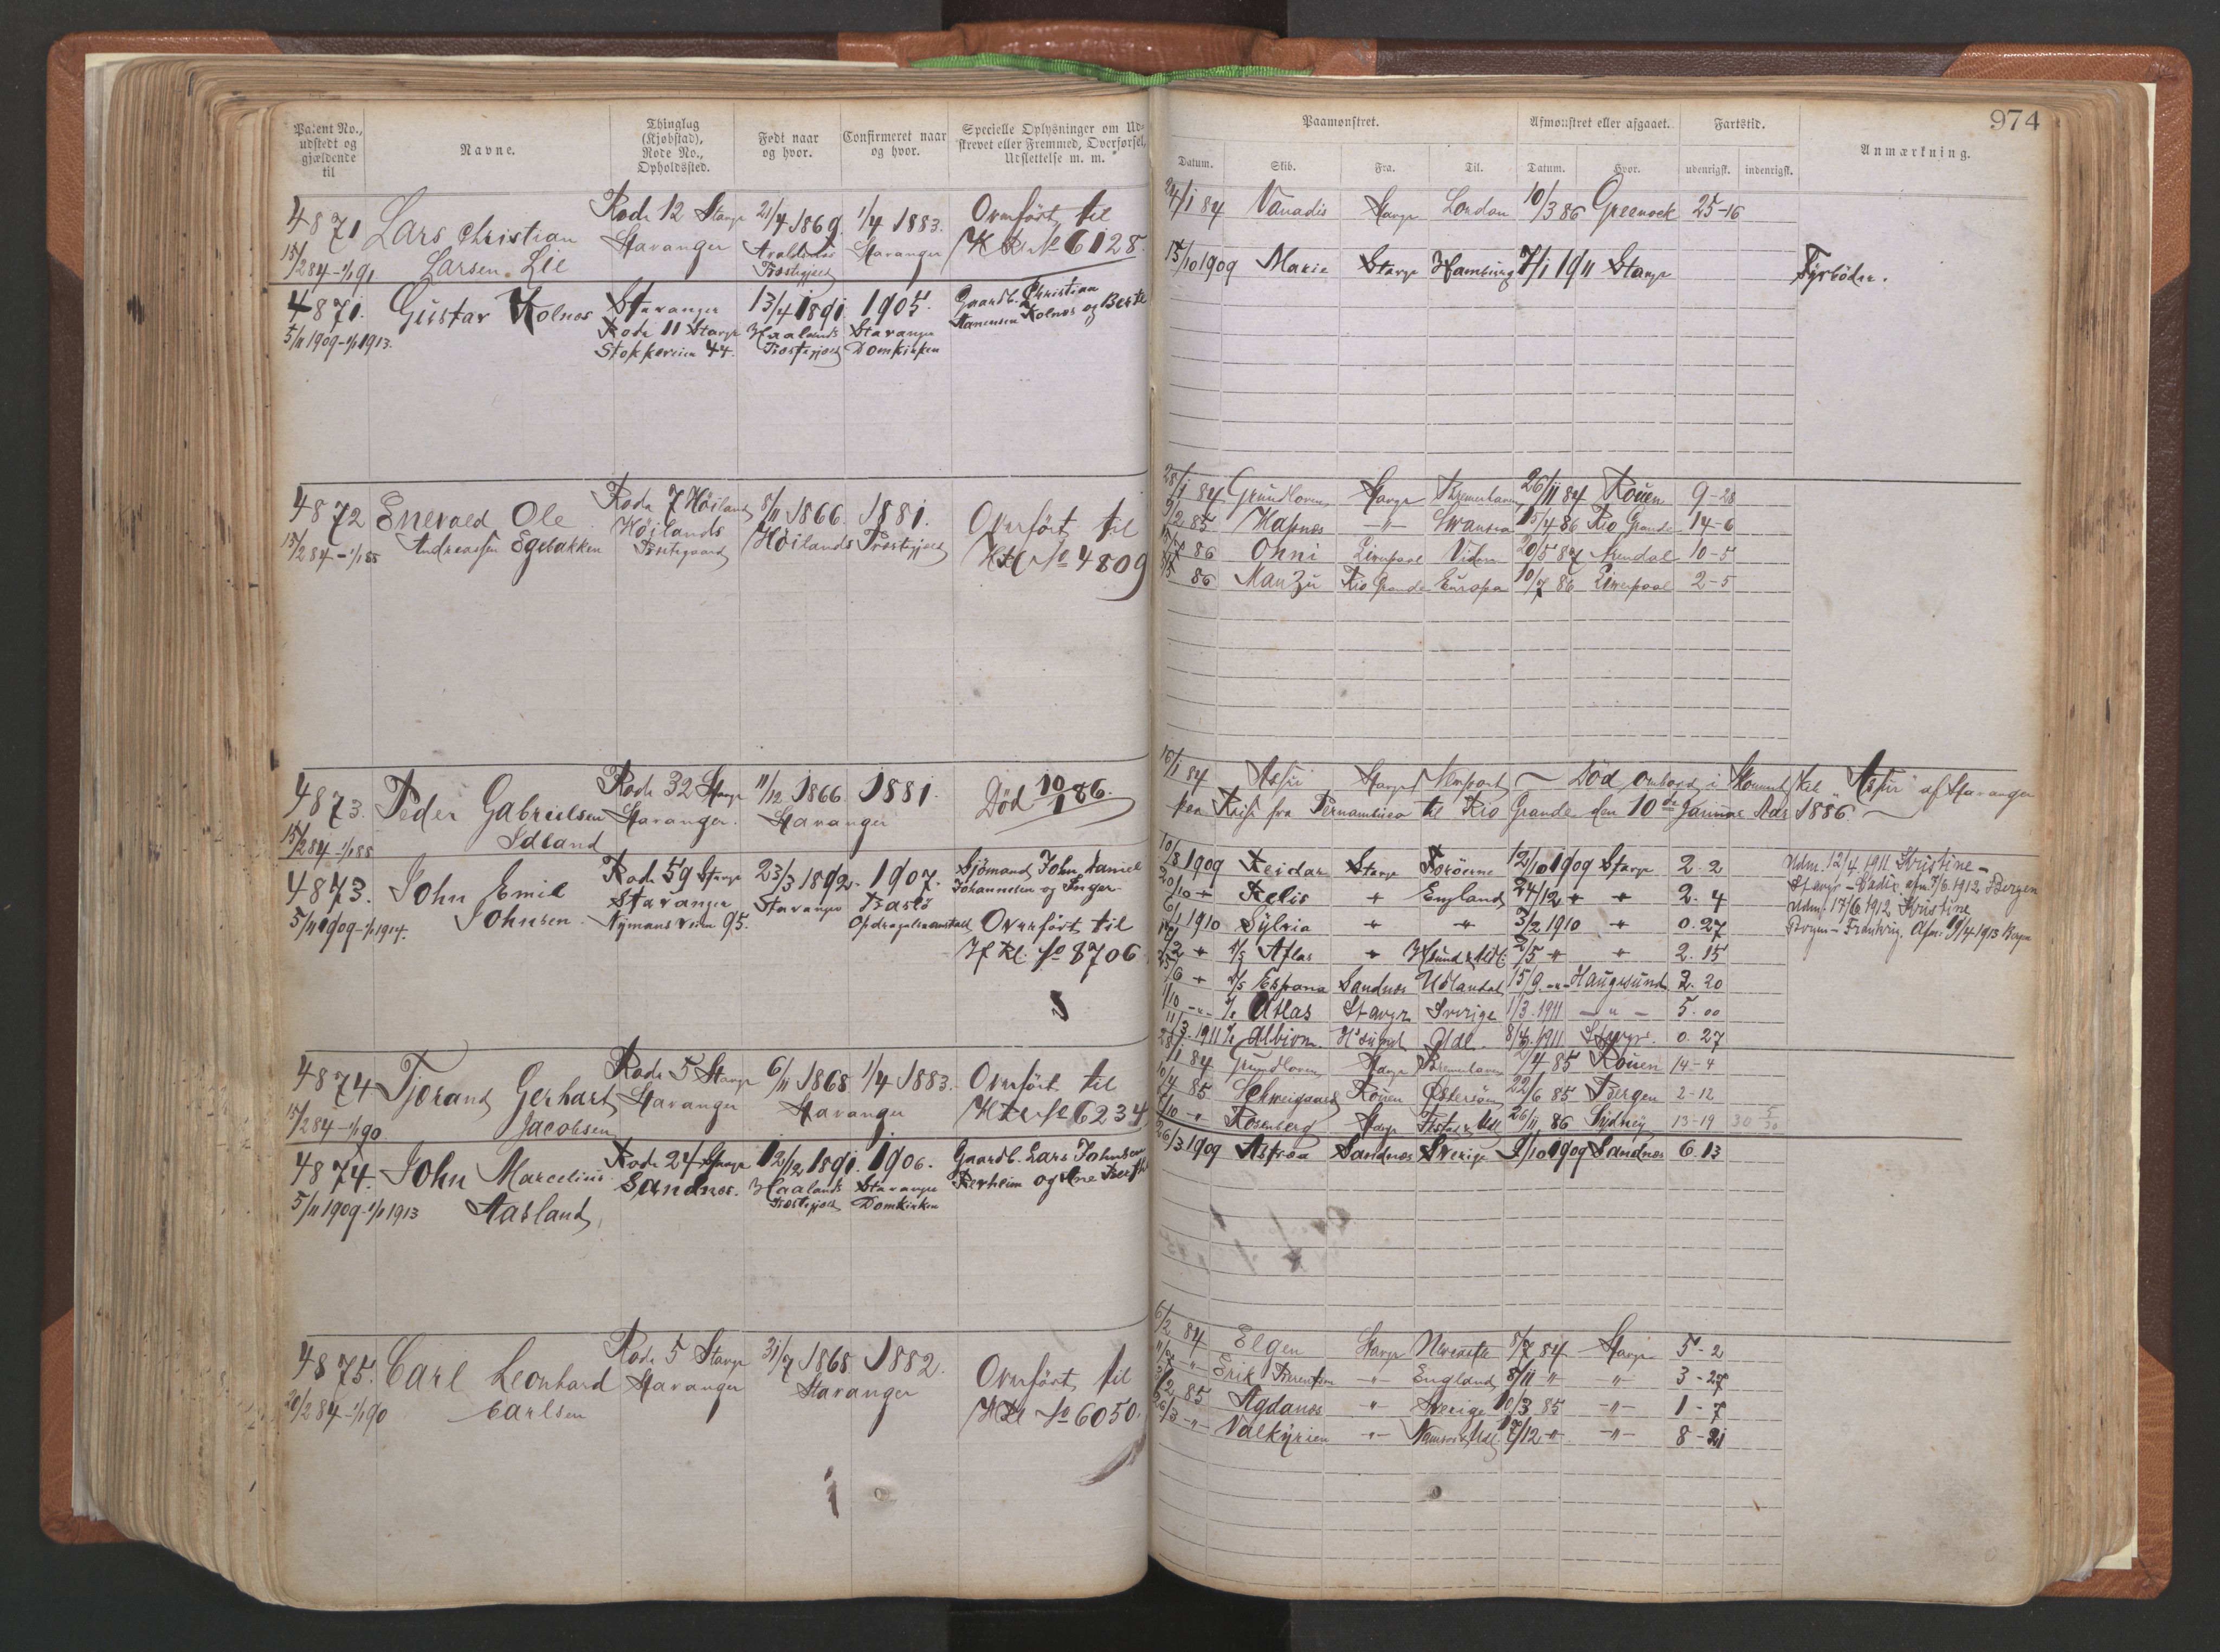 974
Patent No., udstedt og gjældende til
Navne.
Thinglag (Kjøbstad), Rode No., Opholdssted.
Født naar og hvor.
Confirmeret naar og hvor.
Specielle Oplysninger om Ud-
skrevet eller Fremmed, Overførsel,
Udslettelse m. m.
Paamønstret.
Afmønstret eller afgaaet.
Fartstid.
Anmærkning.
Datum. Skib. Fra. Til. Datum. Hvor. udenrigsk. indenrigsk.
4871 Lars Christian Rode 12 Stavgr 21/4 1869. 1/4 1883. Overført til
15/2 84 - 1/1 91 Larsen Lie Stavanger Stavanger No 6128.
Præstegjæld
24/1 84 Vanadis Stavgr London 10/3 86 Greenock 25-16
4871. Gustav Kolnes Stavanger 13/4 1891. 1905. Gaardb. Christian
5/11 1909 - 1/1 1913. Rode 11 Stavgr Haalands Stavanger Kolnes og Berte
Stokkeveien 44. Præstegjæld Domkirken
15/10 1909 Marie Stavgr Hamburg 7/1 1911 Stavgr Fyrbøder.
4872 Enevald Ole Rode 7 Høiland 8/11 1866. 1881. Overført til
15/2 84 - 1/1 85 Andreassen Egebakken Høilands Præstegaard Høilands Præstegjæld No 4809
28/1 84 Grundloven Stavgr Bremerhaven 26/11 84 Rouen 9-28
9/2 85 Hafnæs -"- Swansea 15/4 86 Rio Grande 14-6
86 Onni Liverpool 20/5 87 Arendal 10-5
5/5 86 Rio Grande Europa 10/7 86 Liverpool 2-5
4873. Peder Gabrielsen Rode 32 Stavgr 11/12 1866 1881. Død 10/1 86.
15/2 84 - 1/1 85 Idland Stavanger. Stavanger
16/1 84 Assur Stavgr Newport - Død ombord i "Assur" af Stavanger
paa Reise fra Pernambuco til Rio Grande den 10de Januar Aar 1886.
4873. John Emil Rode 59 Stavgr 23/3 1892. 1907. Sjømand John Daniel
5/11 1909 - 1/1 1914. Johnsen. Stavanger Stavanger Johannesen og Inger
Nymansveien 95. Opdragelsesanstalt Overført til
No 8706
10/8 1909 Reidar Stavgr Færøerne 12/10 1909 Stavgr 2.2
20/10 " England 24/12 " " 2.4
6/1 1910 Sylvia " " 3/2 1910 " 0.27
" D/S Atlas " 2/5 " " 2.15
" D/S Sandnes Udlandet 15/9 -"- Haugesund 2.20
1/10 -"- Atlas Stavgr Sverige 1/3.1911 -"- 5.00
11/3.1911 Albion 8/4.1911 Stavgr. 0.27
Udm. 12/4.1911 Kristine -
Stavgr - Cadix. afm. 7/6.1912 Bergen
Udm. 17/6 1912 Kristine
4874 Tjorand Gerhart Rode 5 Stavgr 6/11 1868 1/4 1883. Overført til
15/2 84 - 1/1 90 Jacobsen Stavanger Stavanger No 6234
28/1 84 Grundloven Stavgr Bremerhaven 2/4 85 Rouen 14-4
85 Schweigaard Rouen Østersøen 22/6 85 Bergen 2-12
/10 " Rosenborg Stavgr 26/11 86 Sydney 13-19
4874. John Marcelius Rode 24 Stavgr 12/12 1891. 1906. Gaardb. Lars Johnsen
5/11 1909 - 1/1 1913 Aasland Sandnes. Haalands Stavanger
Præstegjæld Domkirken
26/3 1909 Astræa Sandnes Sverige 9/10 1909 Sandnes 6.13
4875. Carl Leonhard Rode 5 Stavgr 31/7 1868 1882. Overført til
20/2 84 - 1/1 90 Carlsen Stavanger Stavanger No 6050.
6/2 84 Elgen Stavgr Newcastle 8/7 84 Stavgr 5-2
-"- Erik -"- England 8/11 " " 3-27
85 Agdanes " Sverige 10/3 85 -"- 1-7
26/3 -"- Valkyrien -"- 17/12 " -"- 8-21